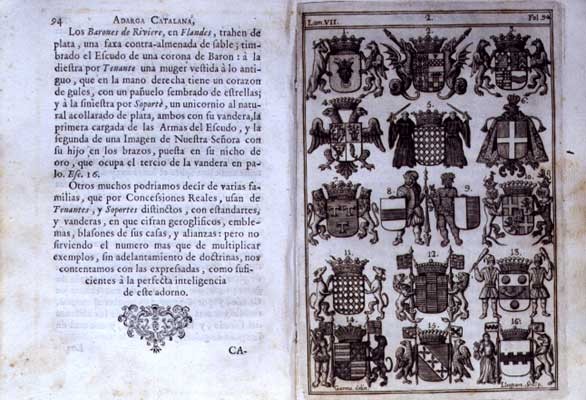 94 ADARGA CATALANA,
Los Barones de Riviere, en Flandes, trahen de
plata, una faxa contra-almenada de sable; tim-
brado el Escudo de una corona de Baron: à la
diestra por Tenante una muger vestida à lo anti-
guo, que en la mano derecha tiene un corazon
de gules, con un pañuelo sembrado de estrellas;
y à la siniestra por Soporte, un unicornio al natu-
ral acollarado de plata, ambos con su vandera, la
primera cargada de las Armas del Escudo, y la
segunda de una Imagen de Nuestra Señora con
su hijo en los brazos, puesta en su nicho de
oro, que ocupa el tercio de la vandera en pa-
lo. Esc. 16.
Otros muchos podriamos decir de varias fa-
milias, que por Concessiones Reales, usan de
Tenantes, y Soportes distinctos, con estandartes,
y vanderas, en que cifran geroglificos, emble-
mas, blasones de sus casas, y alianzas: pero no
sirviendo el numero mas que de multiplicar
exemplos, sin adelantamiento de doctrinas, nos
contentamos con las expressadas, como sufi-
cientes à la perfecta inteligencia
de este adorno.
CA-
Lam. VII. Fol. 94
2.
5. 6.
8. 9.
11. 12. 13.
14. 15. 16.
Garma delin.